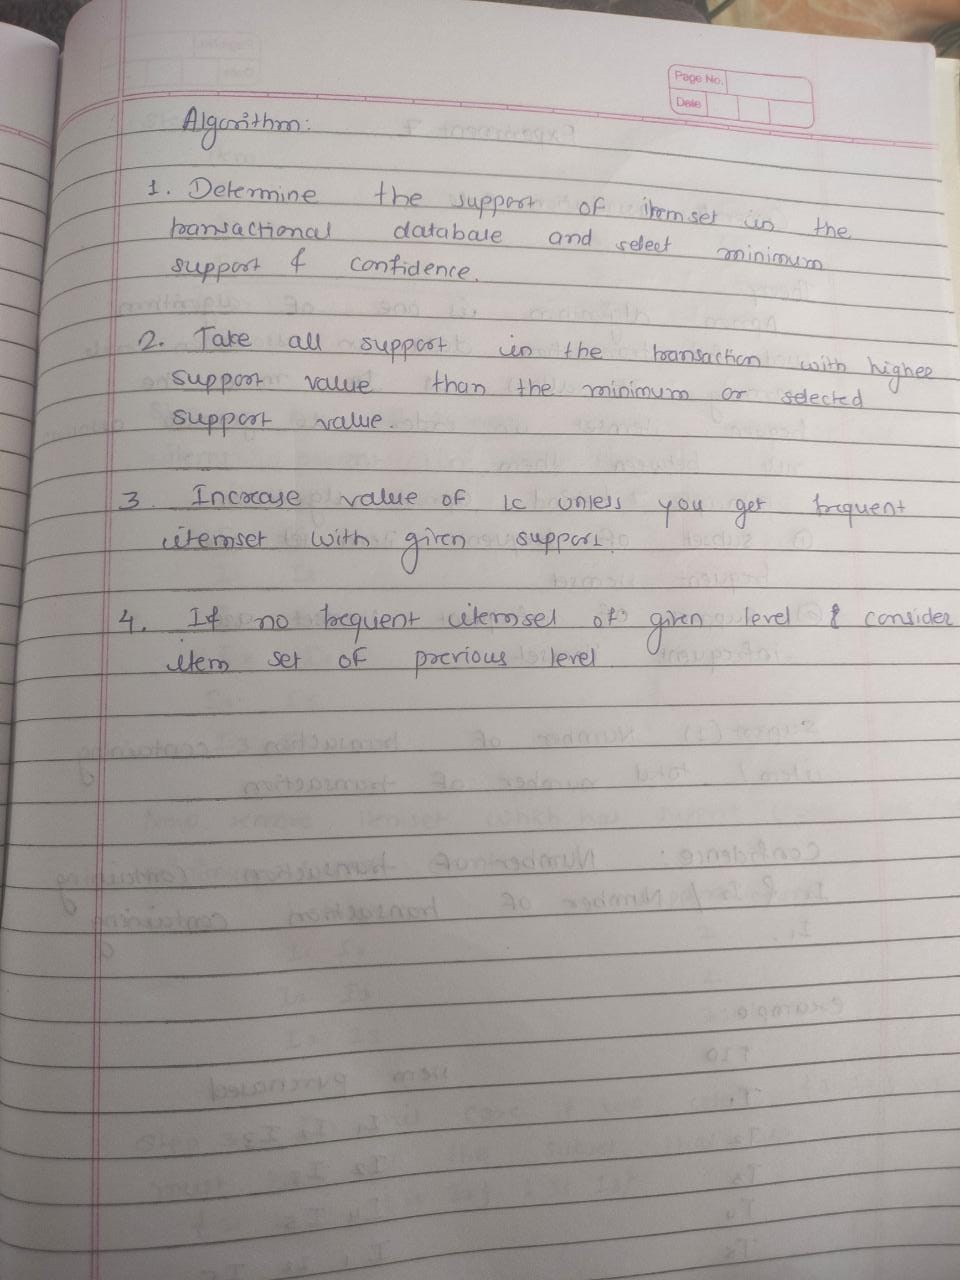 Page No.
Date
Algorithm:
1. Determine the support of itemset in the
transactional database and select minimum
support & confidence.
2. Take all support in the transaction with higher
support value than the minimum or selected
support value.
3. Increase value of k unless you get frequent
itemset with given support.
4. If no frequent itemset of given level & consider
item set of previous level